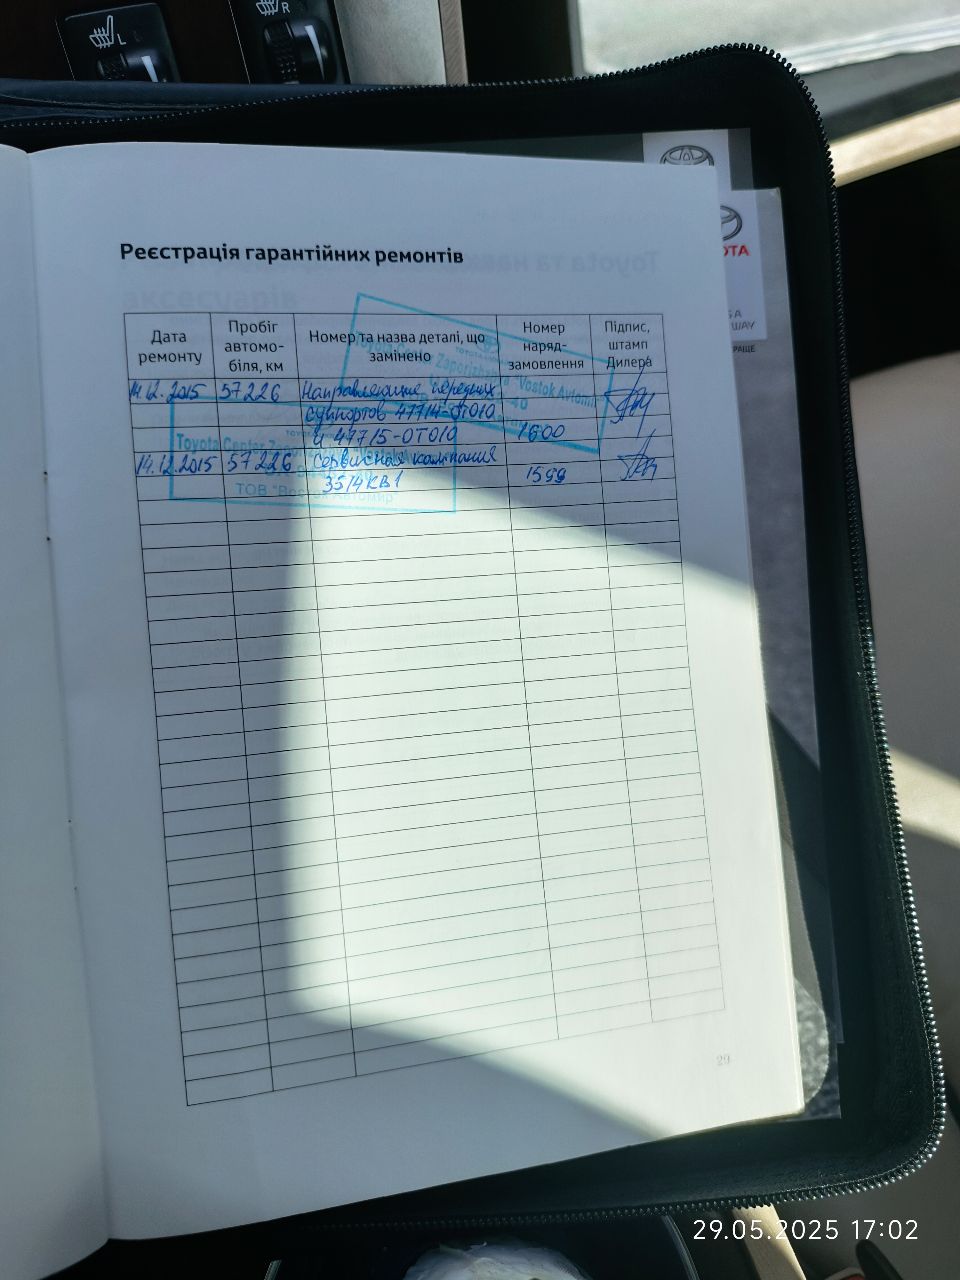 L
R
TA
WAY
РАЩЕ
Реєстрація гарантійних ремонтів
Дата ремонту
Пробіг автомо-біля, км
Номер та назва деталі, що замінено
Номер наряд-замовлення
Підпис, штамп Дилера
14.12.2015 57226 Направляющие передних
суппортов 47714-0T010
и 47715-0T010 1600
14.12.2015 57226 Сервисная кампания
3514КВ1 1599
"Vostok Avtomir"
Toyota Center
ТОВ "Восток Автомир"
29
29.05.2025 17:02